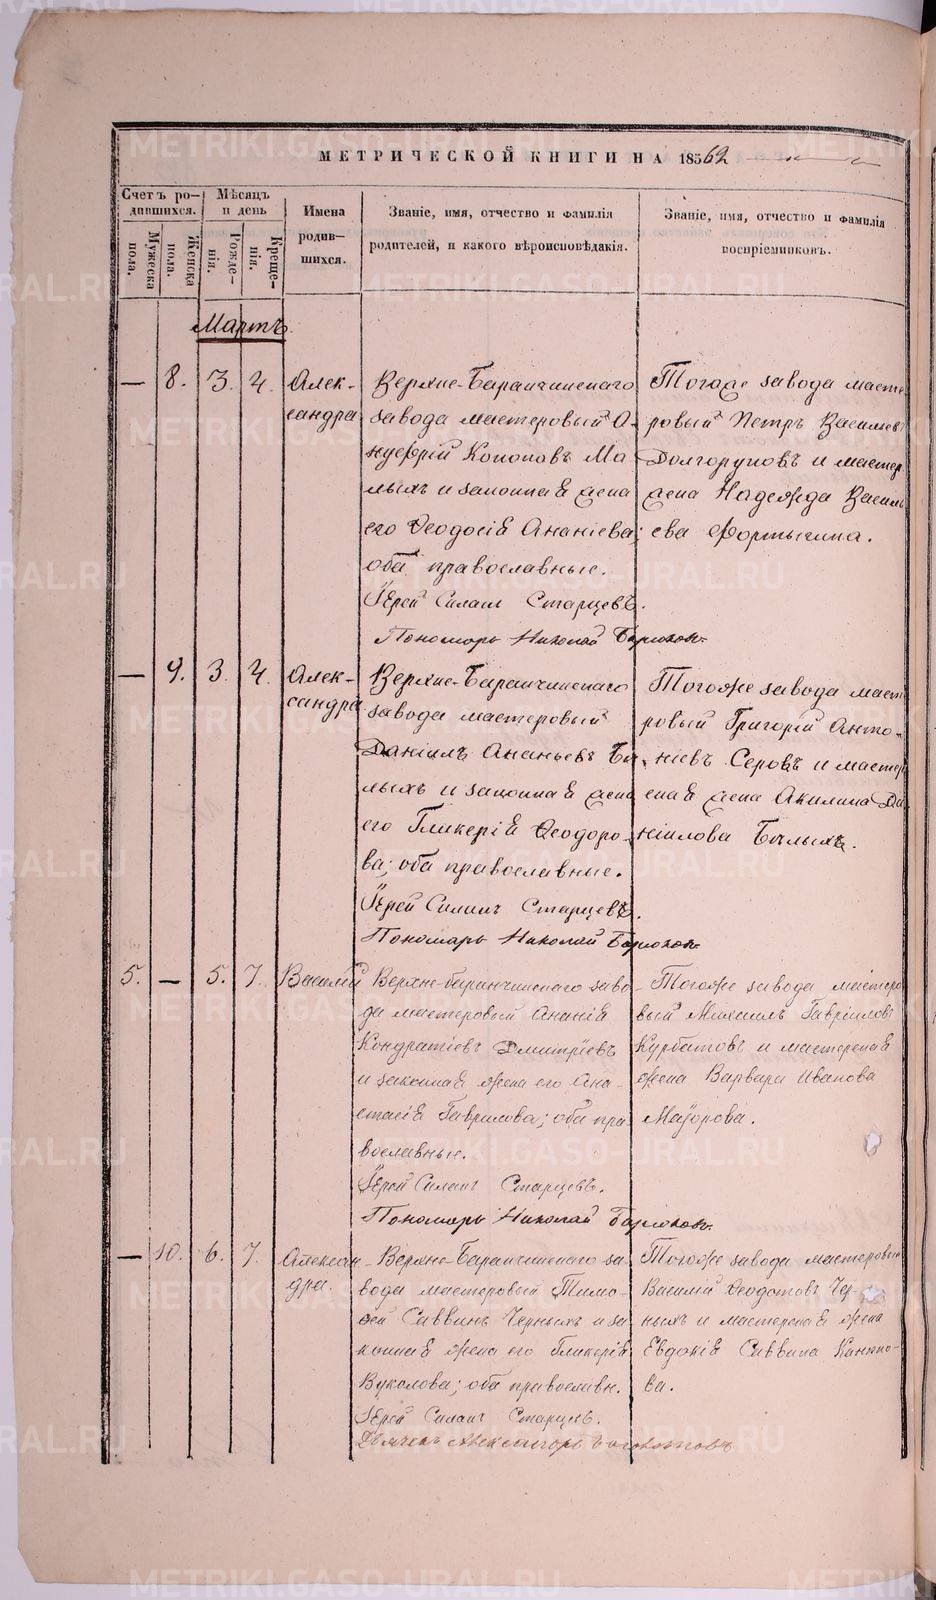 МЕТРИЧЕСКОЙ КНИГИ НА 18562
Счетъ ро-
дившихся.
Мѣсяцъ
и день
Имена
родив-
шихся.
Званіе, имя, отчество и фамилія
родителей, и какого вѣроисповѣданія.
Званіе, имя, отчество и фамилія
воспріемниковъ.
Мужеска
пола.
Женска
пола.
Рожде-
нія.
Креще-
нія.
Мартъ.
— 8. 3. 4. Алек-
сандра
Верхне-Баранчинскаго
завода мастеровый А-
нуфрій Кононовъ Ма
лыхъ и законная жена
его Ѳеодосія Ананіева;
оба православные.
Іерей Силанъ Старцевъ.
Пономарь Николай
Тогоже завода масте-
ровый Петръ Васильев
Долгоруковъ и мастер
жена Надежда Василь
ева Фортыгина.
— 9. 3. 4. Алек-
сандра
Верхне-Баранчинскаго
завода мастеровый
Даніилъ Ананьевъ Бѣ-
лыхъ и законная жена
его Гликерія Ѳеодоро-
ва; оба православные.
Іерей Силанъ Старцевъ.
Пономарь Николай
Тогоже завода масте
ровый Григорій Анто-
ніевъ Серовъ и мастер
еная жена Акилина Да
ніилова Бѣлыхъ.
5. — 5. 7. Василій
Верхне-баранчинскаго заво-
да мастеровый Ананія
Кондратіевъ Дмитріевъ
и законная жена его Ана-
стасія Гаврилова; оба пра-
вославные.
Іерей Силанъ Старцевъ.
Пономарь Николай
Тогоже завода мастеро
вый Михаилъ Гавріиловъ
Курбатовъ и мастереная
жена Варвара Иванова
Маіорова.
— 10. 6. 7. Алексан
дра.
Верхне-Баранчинскаго за-
вода мастеровый Тимо-
ѳей Саввинъ Черныхъ и за
конная жена его Гликерія
Вуколова; оба православн.
Іерей Силанъ Старцевъ.
Дьячекъ Александръ
Тогоже завода мастеровые
Василій Ѳеодотовъ Чер-
ныхъ и мастереная жена
Евдокія Саввина
ва.
METRIKI.GASO-URAL.RU